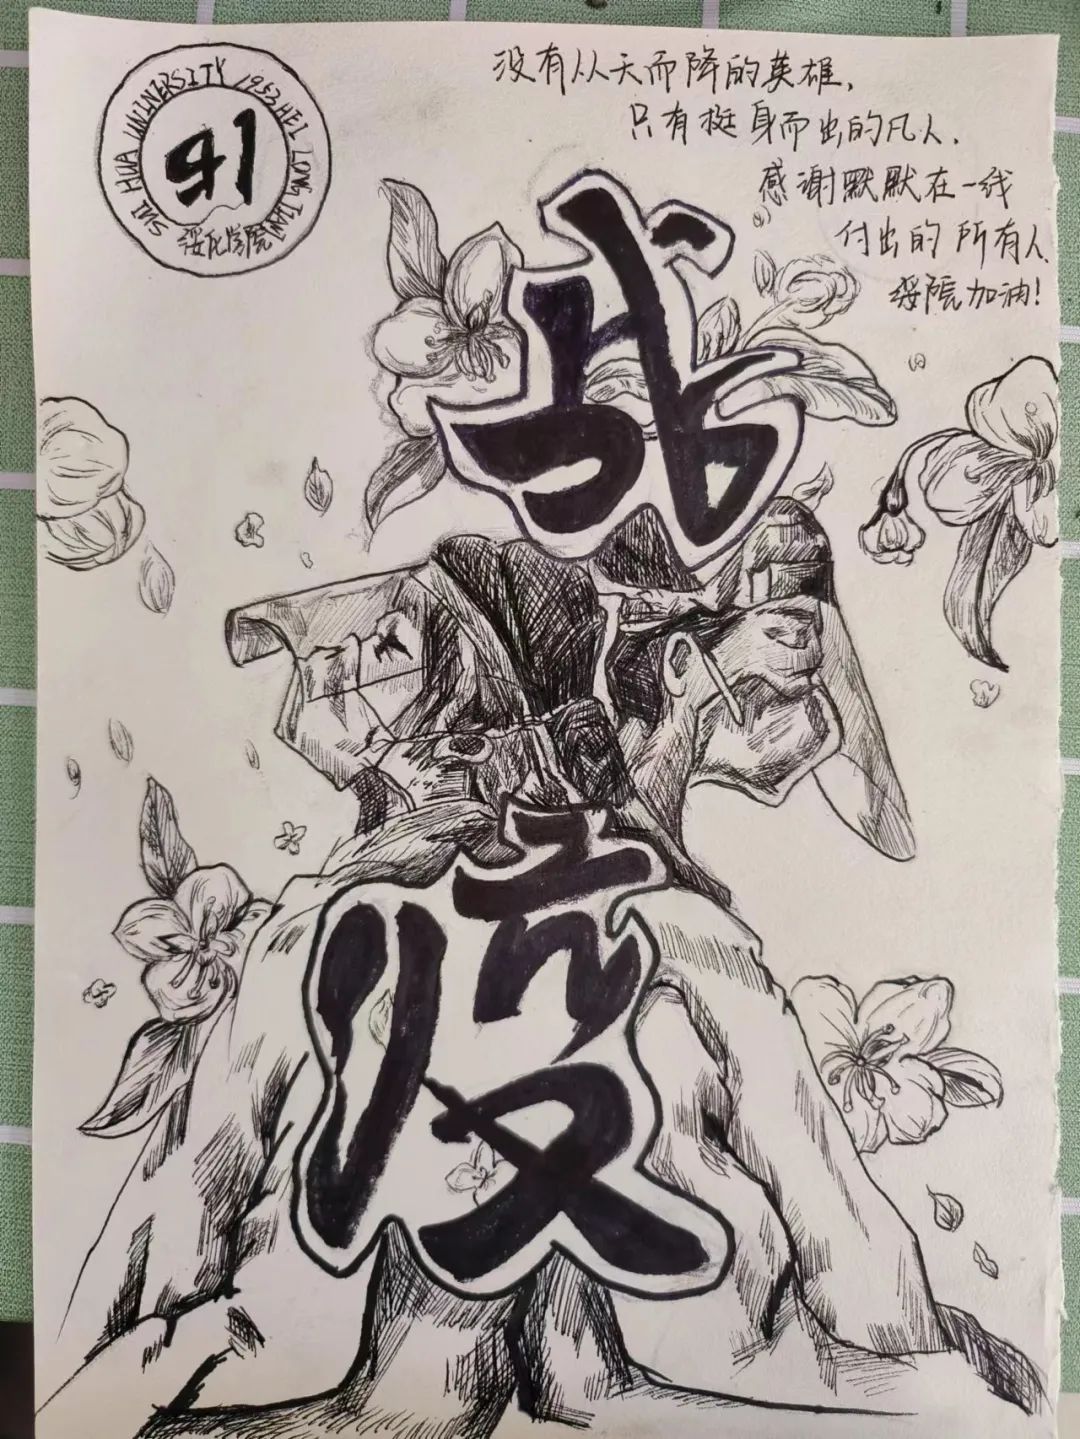 SUI HUA UNINERSITY 1953 HEI LONG JIANG
绥化学院
没有从天而降的英雄,
只有挺身而出的凡人.
感谢默默在一线
付出的所有人.
绥院加油!
战
疫